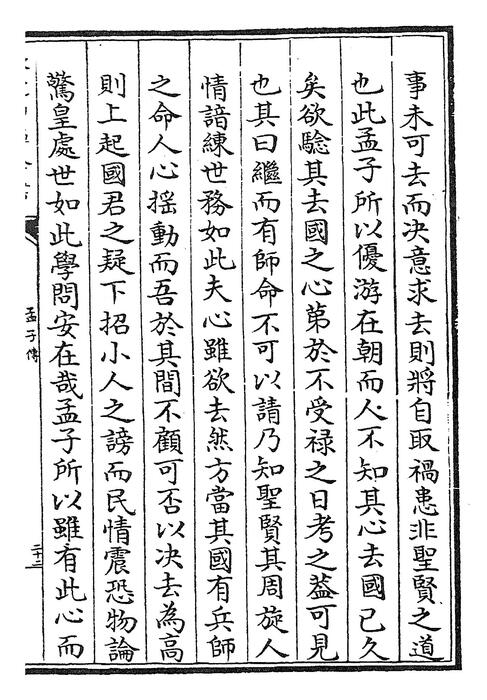 事未可去而决意求去則將自取禍患非聖賢之道
也此孟子所以優游在朝而人不知其心去國已久
矣欲驗其去國之心第於不受禄之日考之葢可見
也其曰繼而有師命不可以請乃知聖賢其周旋人
情諳練世務如此夫心雖欲去然方當其國有兵師
之命人心揺動而吾於其間不顧可否以决去為高
則上起國君之疑下招小人之謗而民情震恐物論
驚皇處世如此學問安在哉孟子所以雖有此心而
孟子傳
二十三